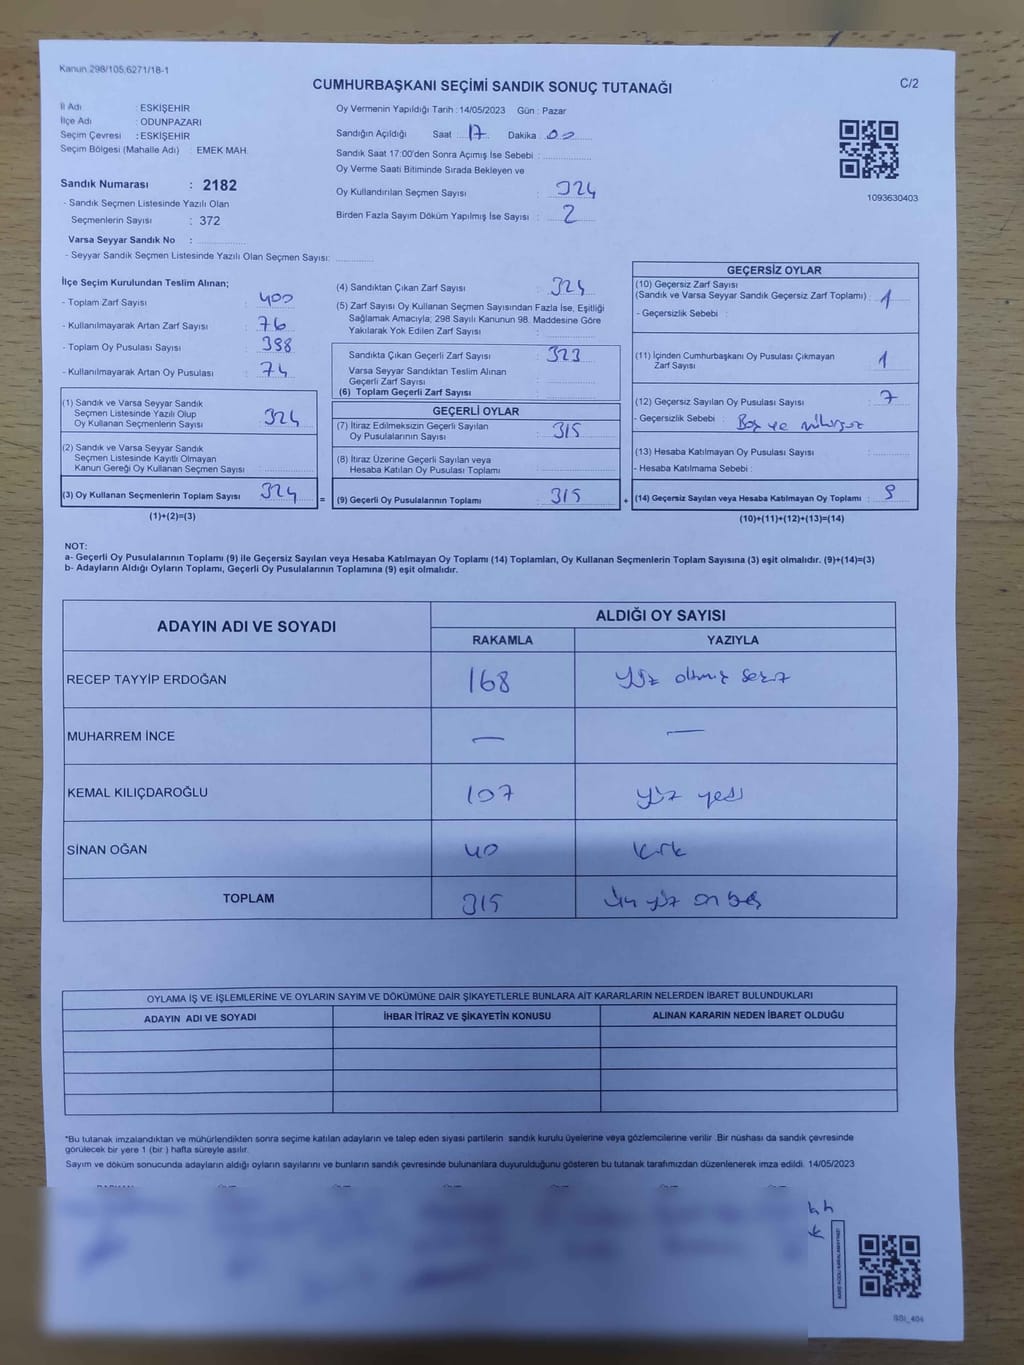 Kanun 298/105,6271/18-1
CUMHURBAŞKANI SEÇİMİ SANDIK SONUÇ TUTANAĞI
C/2
İl Adı : ESKİŞEHİR
İlçe Adı : ODUNPAZARI
Seçim Çevresi : ESKİŞEHİR
Seçim Bölgesi (Mahalle Adı) : EMEK MAH.
Sandık Numarası : 2182
- Sandık Seçmen Listesinde Yazılı Olan
Seçmenlerin Sayısı : 372
Varsa Seyyar Sandık No :
- Seyyar Sandik Seçmen Listesinde Yazılı Olan Seçmen Sayısı:
Oy Vermenin Yapıldığı Tarih : 14/05/2023 Gün : Pazar
Sandığın Açıldığı Saat : 17 Dakika : 00
Sandık Saat 17:00'den Sonra Açımış İse Sebebi :
Oy Verme Saati Bitiminde Sırada Bekleyen ve
Oy Kullandırılan Seçmen Sayısı : 324
Birden Fazla Sayım Döküm Yapılmış İse Sayısı : 2
1093630403
İlçe Seçim Kurulundan Teslim Alınan;
- Toplam Zarf Sayısı : 400
- Kullanılmayarak Artan Zarf Sayısı : 76
- Toplam Oy Pusulası Sayısı : 398
- Kullanılmayarak Artan Oy Pusulası : 74
(1) Sandık ve Varsa Seyyar Sandık
Seçmen Listesinde Yazılı Olup
Oy Kullanan Seçmenlerin Sayısı : 324
(2) Sandık ve Varsa Seyyar Sandık
Seçmen Listesinde Kayıtlı Olmayan
Kanun Gereği Oy Kullanan Seçmen Sayısı :
(3) Oy Kullanan Seçmenlerin Toplam Sayısı : 324
(1)+(2)=(3)
(4) Sandıktan Çıkan Zarf Sayısı : 324
(5) Zarf Sayısı Oy Kullanan Seçmen Sayısından Fazla İse, Eşitliği
Sağlamak Amacıyla; 298 Sayılı Kanunun 98. Maddesine Göre
Yakılarak Yok Edilen Zarf Sayısı :
Sandıkta Çıkan Geçerli Zarf Sayısı : 323
Varsa Seyyar Sandıktan Teslim Alınan
Geçerli Zarf Sayısı :
(6) Toplam Geçerli Zarf Sayısı :
GEÇERLİ OYLAR
(7) İtiraz Edilmeksizin Geçerli Sayılan
Oy Pusulalarının Sayısı : 315
(8) İtiraz Üzerine Geçerli Sayılan veya
Hesaba Katılan Oy Pusulası Toplamı :
= (9) Geçerli Oy Pusulalarının Toplamı : 315
GEÇERSİZ OYLAR
(10) Geçersiz Zarf Sayısı
(Sandık ve Varsa Seyyar Sandık Geçersiz Zarf Toplamı) : 1
- Geçersizlik Sebebi :
(11) İçinden Cumhurbaşkanı Oy Pusulası Çıkmayan
Zarf Sayısı : 1
(12) Geçersiz Sayılan Oy Pusulası Sayısı : 7
- Geçersizlik Sebebi : Boş ve mühürsüz
(13) Hesaba Katılmayan Oy Pusulası Sayısı :
- Hesaba Katılmama Sebebi :
+ (14) Geçersiz Sayılan veya Hesaba Katılmayan Oy Toplamı : 9
(10)+(11)+(12)+(13)=(14)
NOT:
a- Geçerli Oy Pusulalarının Toplamı (9) ile Geçersiz Sayılan veya Hesaba Katılmayan Oy Toplamı (14) Toplamları, Oy Kullanan Seçmenlerin Toplam Sayısına (3) eşit olmalıdır. (9)+(14)=(3)
b- Adayların Aldığı Oyların Toplamı, Geçerli Oy Pusulalarının Toplamına (9) eşit olmalıdır.
ADAYIN ADI VE SOYADI ALDIĞI OY SAYISI
RAKAMLA YAZIYLA
RECEP TAYYİP ERDOĞAN 168 Yüz altmış sekiz
MUHARREM İNCE — —
KEMAL KILIÇDAROĞLU 107 yüz yedi
SİNAN OĞAN 40 kırk
TOPLAM 315 Üç yüz on beş
OYLAMA İŞ VE İŞLEMLERİNE VE OYLARIN SAYIM VE DÖKÜMÜNE DAİR ŞİKAYETLERLE BUNLARA AİT KARARLARIN NELERDEN İBARET BULUNDUKLARI
ADAYIN ADI VE SOYADI İHBAR İTİRAZ VE ŞİKAYETİN KONUSU ALINAN KARARIN NEDEN İBARET OLDUĞU
*Bu tutanak imzalandıktan ve mühürlendikten sonra seçime katılan adayların ve talep eden siyasi partilerin sandık kurulu üyelerine veya gözlemcilerine verilir. Bir nüshası da sandık çevresinde
görülecek bir yere 1 (bir ) hafta süreyle asılır.
Sayım ve döküm sonucunda adayların aldığı oyların sayılarını ve bunların sandık çevresinde bulunanlara duyurulduğunu gösteren bu tutanak tarafımızdan düzenlenerek imza edildi. 14/05/2023